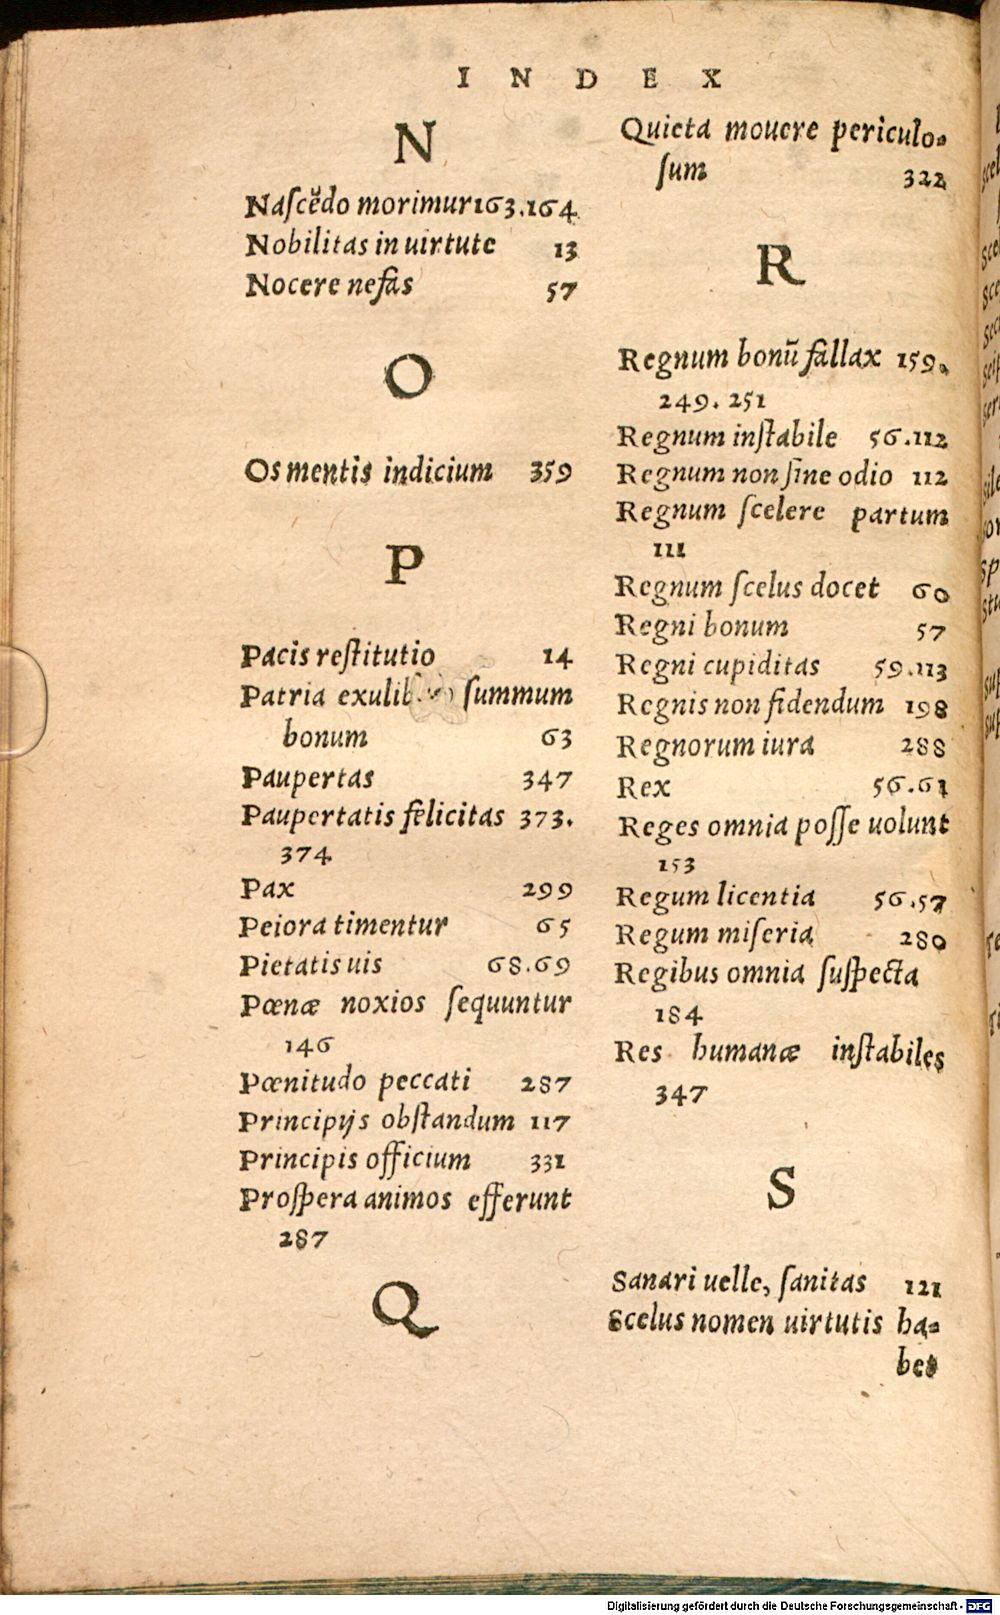 INDEX
N
Naſcẽdo morimur 163.164
Nobilitas in uirtute 13
Nocere nefas 57
O
Os mentis indicium 359
P
Pacis reſtitutio 14
Patria ſummum
bonum 63
Paupertas 347
Paupertatis felicitas 373.
374
Pax 299
Peiora timentur 65
Pietatis uis 68.69
Pœnæ noxios ſequuntur
146
Pœnitudo peccati 287
Principijs obſtandum 117
Principis officium 331
Proſpera animos efferunt
287
Q
Quieta mouere periculo-
ſum 322
R
Regnum bonũ fallax 159.
249. 251
Regnum inſtabile 56.112
Regnum non ſine odio 112
Regnum ſcelere partum
111
Regnum ſcelus docet 60
Regni bonum 57
Regni cupiditas 59.113
Regnis non fidendum 198
Regnorum iura 288
Rex 56.61
Reges omnia poſſe uolunt
153
Regum licentia 56.57
Regum miſeria 280
Regibus omnia ſuſpecta
184
Res humanæ inſtabiles
347
S
Sanari uelle, ſanitas 121
Scelus nomen uirtutis ha-
bet
Digitalisierung gefördert durch die Deutsche Forschungsgemeinschaft - DFG